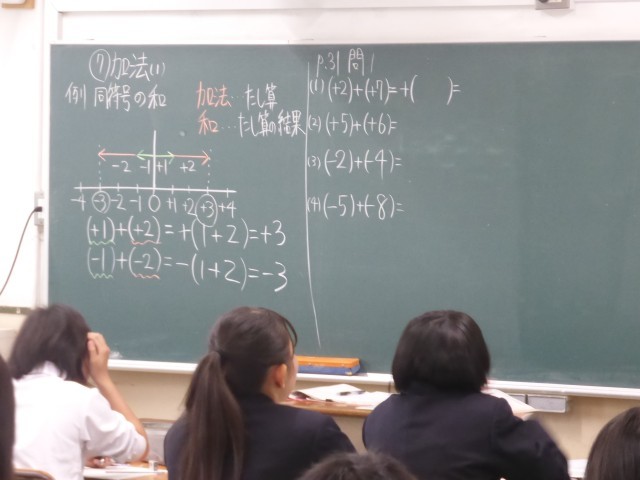 ⑦加法(1)
例1 同符号の和
加法…たし算
和…たし算の結果
-2 -1 +1 +2
-4 -3 -2 -1 0 +1 +2 +3 +4
(+1)+(+2)=+(1+2)=+3
(-1)+(-2)=-(1+2)=-3
P.31 問1
(1) (+2)+(+7)=+( )=
(2) (+5)+(+6)=
(3) (-2)+(-4)=
(4) (-5)+(-8)=